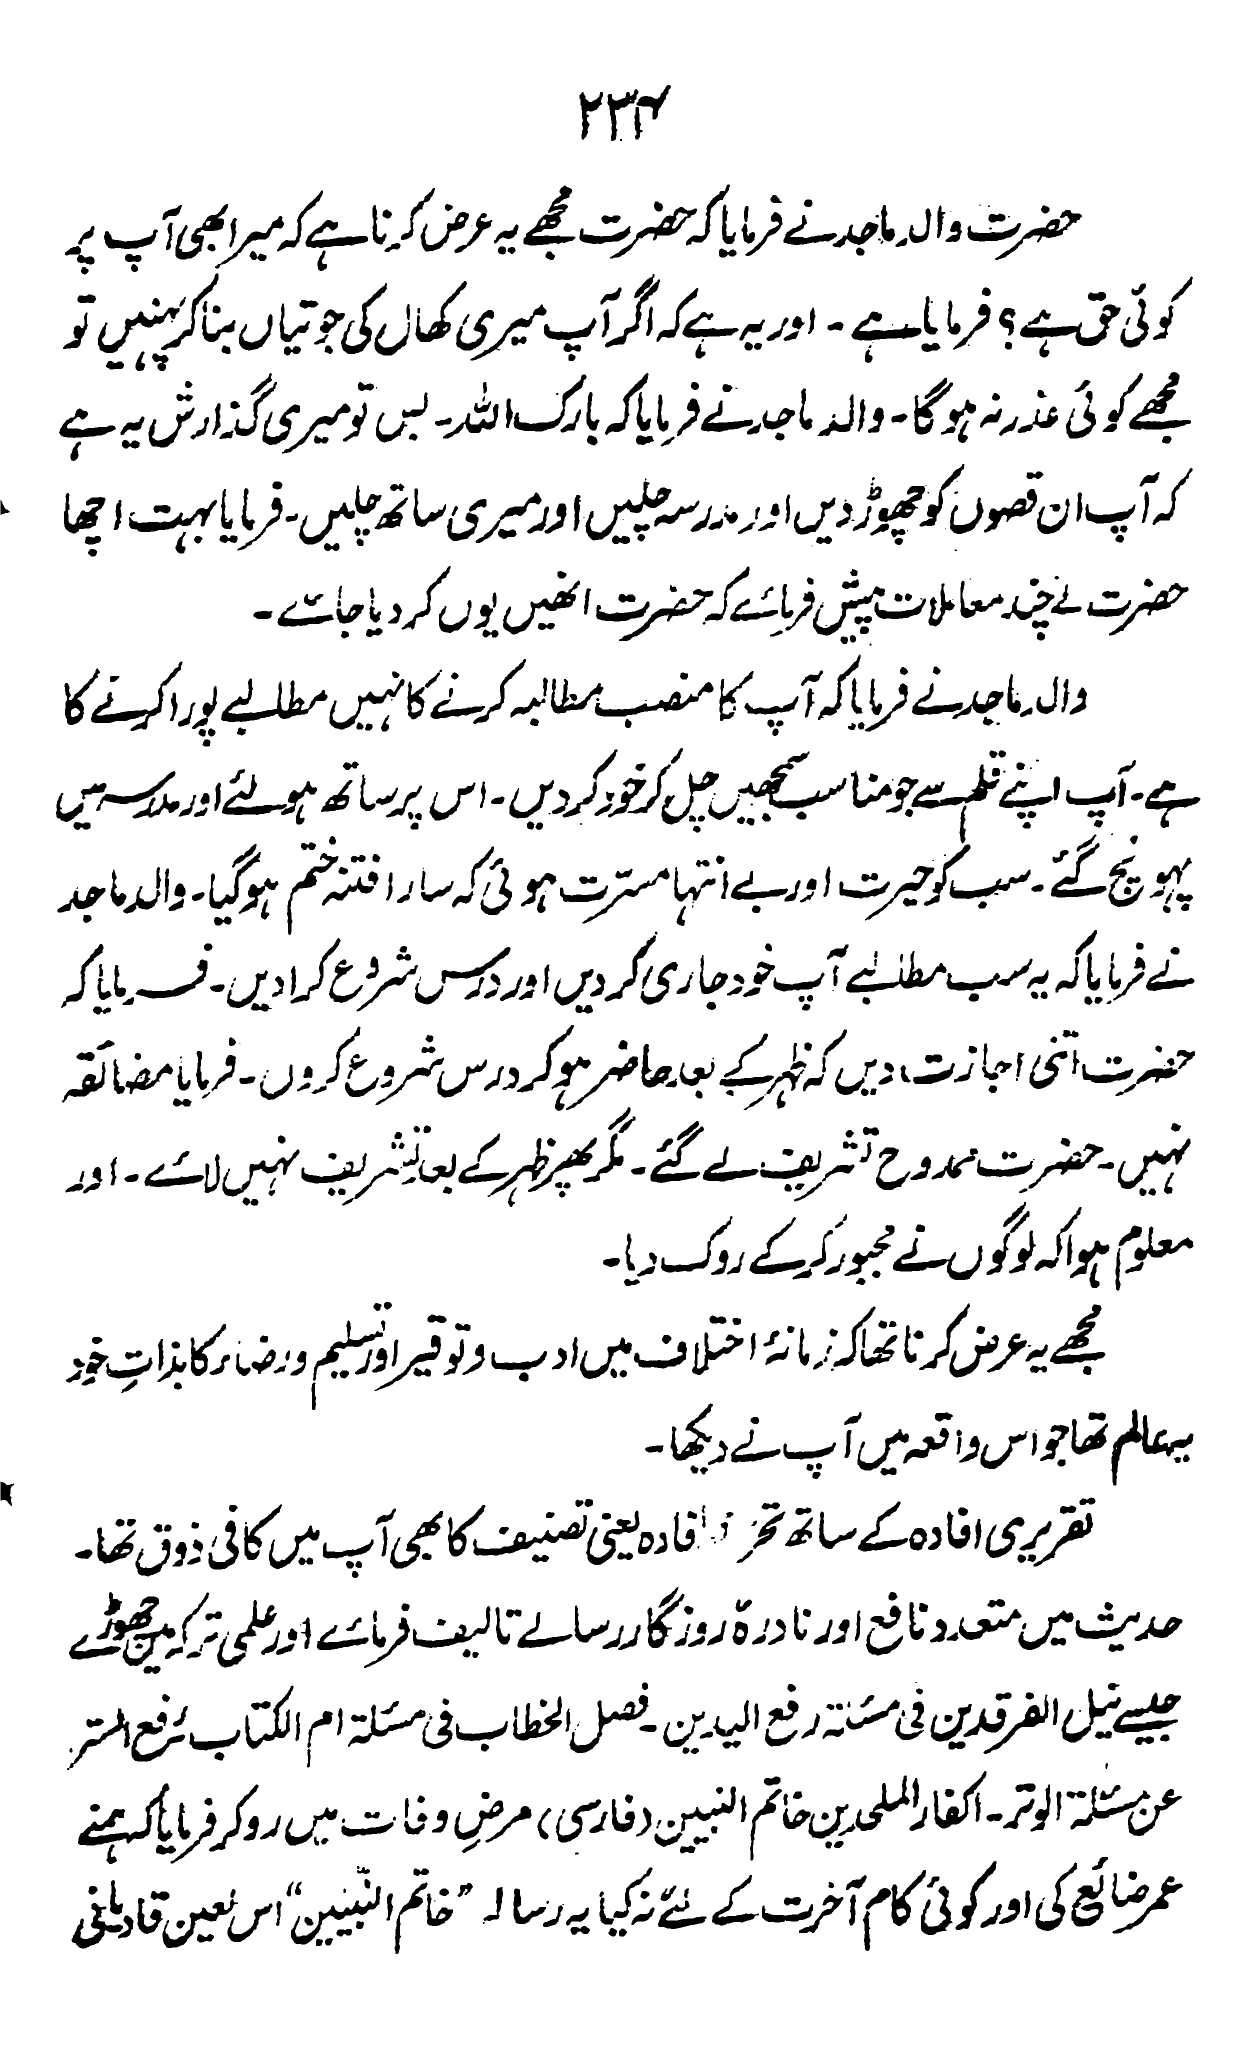 ۲۳۶
حضرت والد ماجد نے فرمایا کہ حضرت مجھے یہ عرض کرنا ہے کہ میرا بھی آپ پر
کوئی حق ہے؟ فرمایا ہے ۔ اور یہ ہے کہ اگر آپ میری کھال کی جوتیاں بنا کر پہنیں تو
مجھے کوئی عذر نہ ہوگا۔ والد ماجد نے فرمایا کہ بارک اللہ۔ بس تو میری گذارش یہ ہے
کہ آپ ان قصوں کو چھوڑ دیں اور مدرسہ چلیں اور میری ساتھ چلیں۔ فرمایا بہت اچھا
حضرت نے چند معاملات پیش فرمائے کہ حضرت انھیں یوں کر دیا جائے ۔
والد ماجد نے فرمایا کہ آپ کا منصب مطالبہ کرنے کا نہیں مطالبے پورا کرنے کا
ہے۔ آپ اپنے قلم سے جو مناسب سمجھیں چل کر خود کر دیں۔ اس پر ساتھ ہو لئے اور مدرسہ میں
پہونچ گئے۔ سب کو حیرت اور بے انتہا مسرّت ہوئی کہ سارا فتنہ ختم ہوگیا۔ والد ماجد
نے فرمایا کہ یہ سب مطالبے آپ خود جاری کر دیں اور درس شروع کرا دیں۔ فرمایا کہ
حضرت اتنی اجازت دیں کہ ظہر کے بعد حاضر ہوکر درس شروع کروں۔ فرمایا مضائقہ
نہیں۔ حضرت ممدوح تشریف لے گئے۔ مگر پھر ظہر کے بعد تشریف نہیں لائے۔ اور
معلوم ہوا کہ لوگوں نے مجبور کر کے روک دیا۔
مجھے یہ عرض کرنا تھا کہ زمانۂ اختلاف میں ادب و توقیر اور تسلیم و رضاء کا بذاتِ خود
یہ عالم تھا جو اس واقعہ میں آپ نے دیکھا۔
تقریری افادہ کے ساتھ افادہ یعنی تصنیف کا بھی آپ میں کافی ذوق تھا۔
حدیث میں متعدد نافع اور نادرۂ روزگار رسالے تالیف فرمائے اور علمی ترکہ میں چھوڑے
جیسے نیل الفرقدین فی مسئلۃ رفع الیدین۔ فصل الخطاب فی مسئلۃ ام الکتاب۔ رفع الستر
عن مسئلۃ الوتر۔ اکفار الملحدین خاتم النبیین (فارسی) مرضِ وفات میں رو کر فرمایا کہ ہمنے
عمر ضائع کی اور کوئی کام آخرت کے لئے نہ کیا یہ رسالہ ”خاتم النّبیین“ اس لعین قادیانی